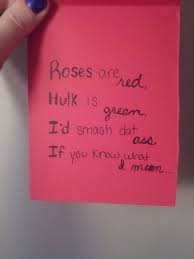 Roses are red,
Hulk is green,
I'd smash dat ass.
If you know what
I mean...